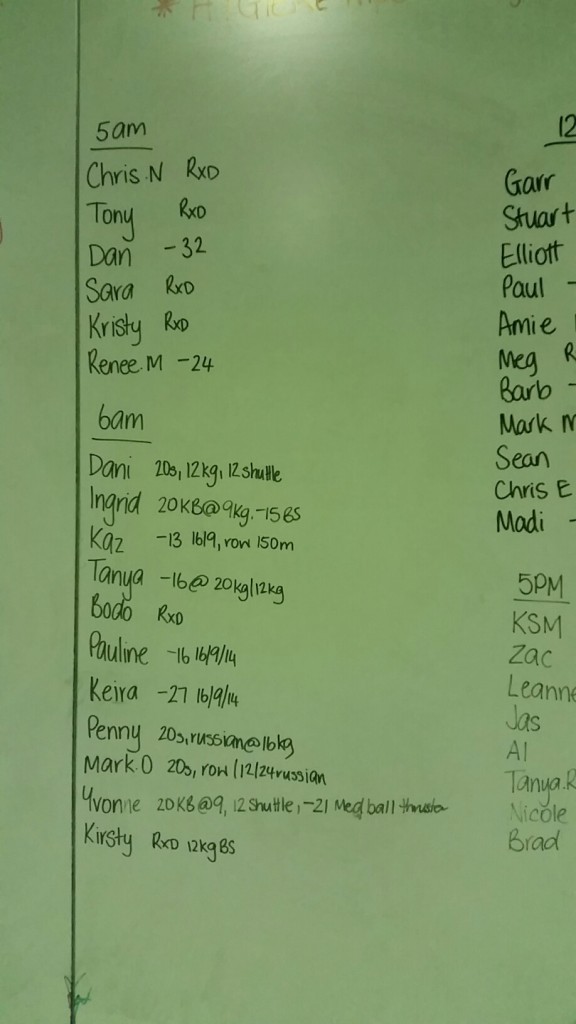 5am
Chris.N RxD
Tony RxD
Dan -32
Sara RxD
Kristy RxD
Renee.M -24
6am
Dani 20s, 12kg, 12 shuttle
Ingrid 20KB@9kg. -15BS
Kaz -13 16/9, row 150m
Tanya -16@ 20kg/12kg
Bodo RxD
Pauline -16 16/9/14
Keira -27 16/9/14
Penny 20s, russian@16kg
Mark.O 20s, row/12/24russian
Yvonne 20KB@9, 12 shuttle, -21 Med ball thruster
Kirsty RxD 12kgBS
12
Garr
Stuart
Elliott
Paul -
Amie
Meg R
Barb -
Mark M
Sean
Chris E
Madi -
5PM
KSM
Zac
Leanne
Jas
Al
Tanya.R
Nicole
Brad